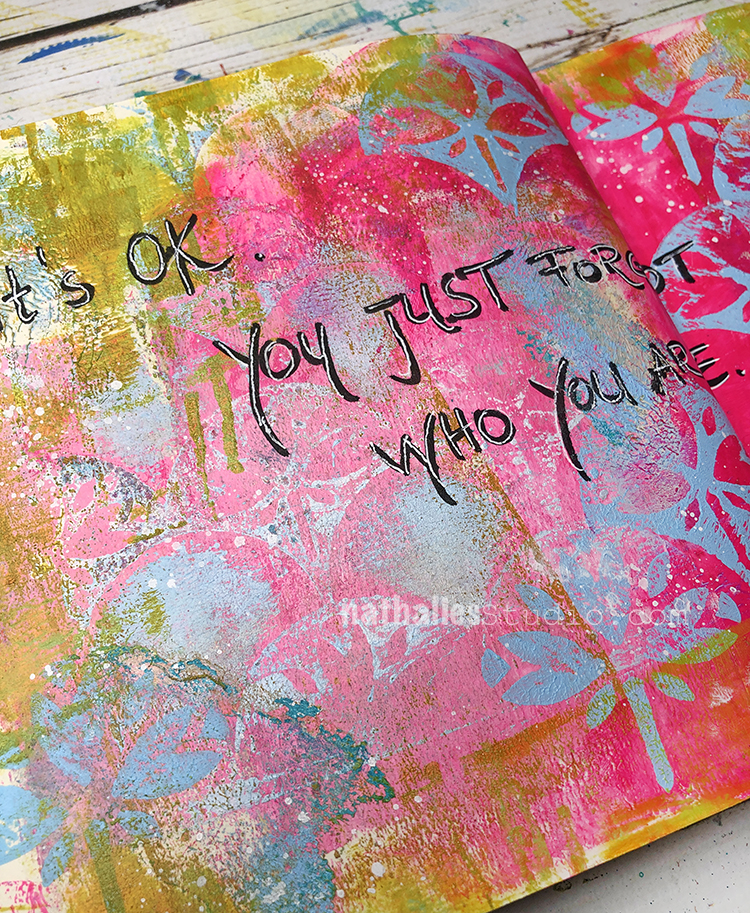 it's OK.
YOU JUST FORGOT
WHO YOU ARE.
nathaliesStudio.com